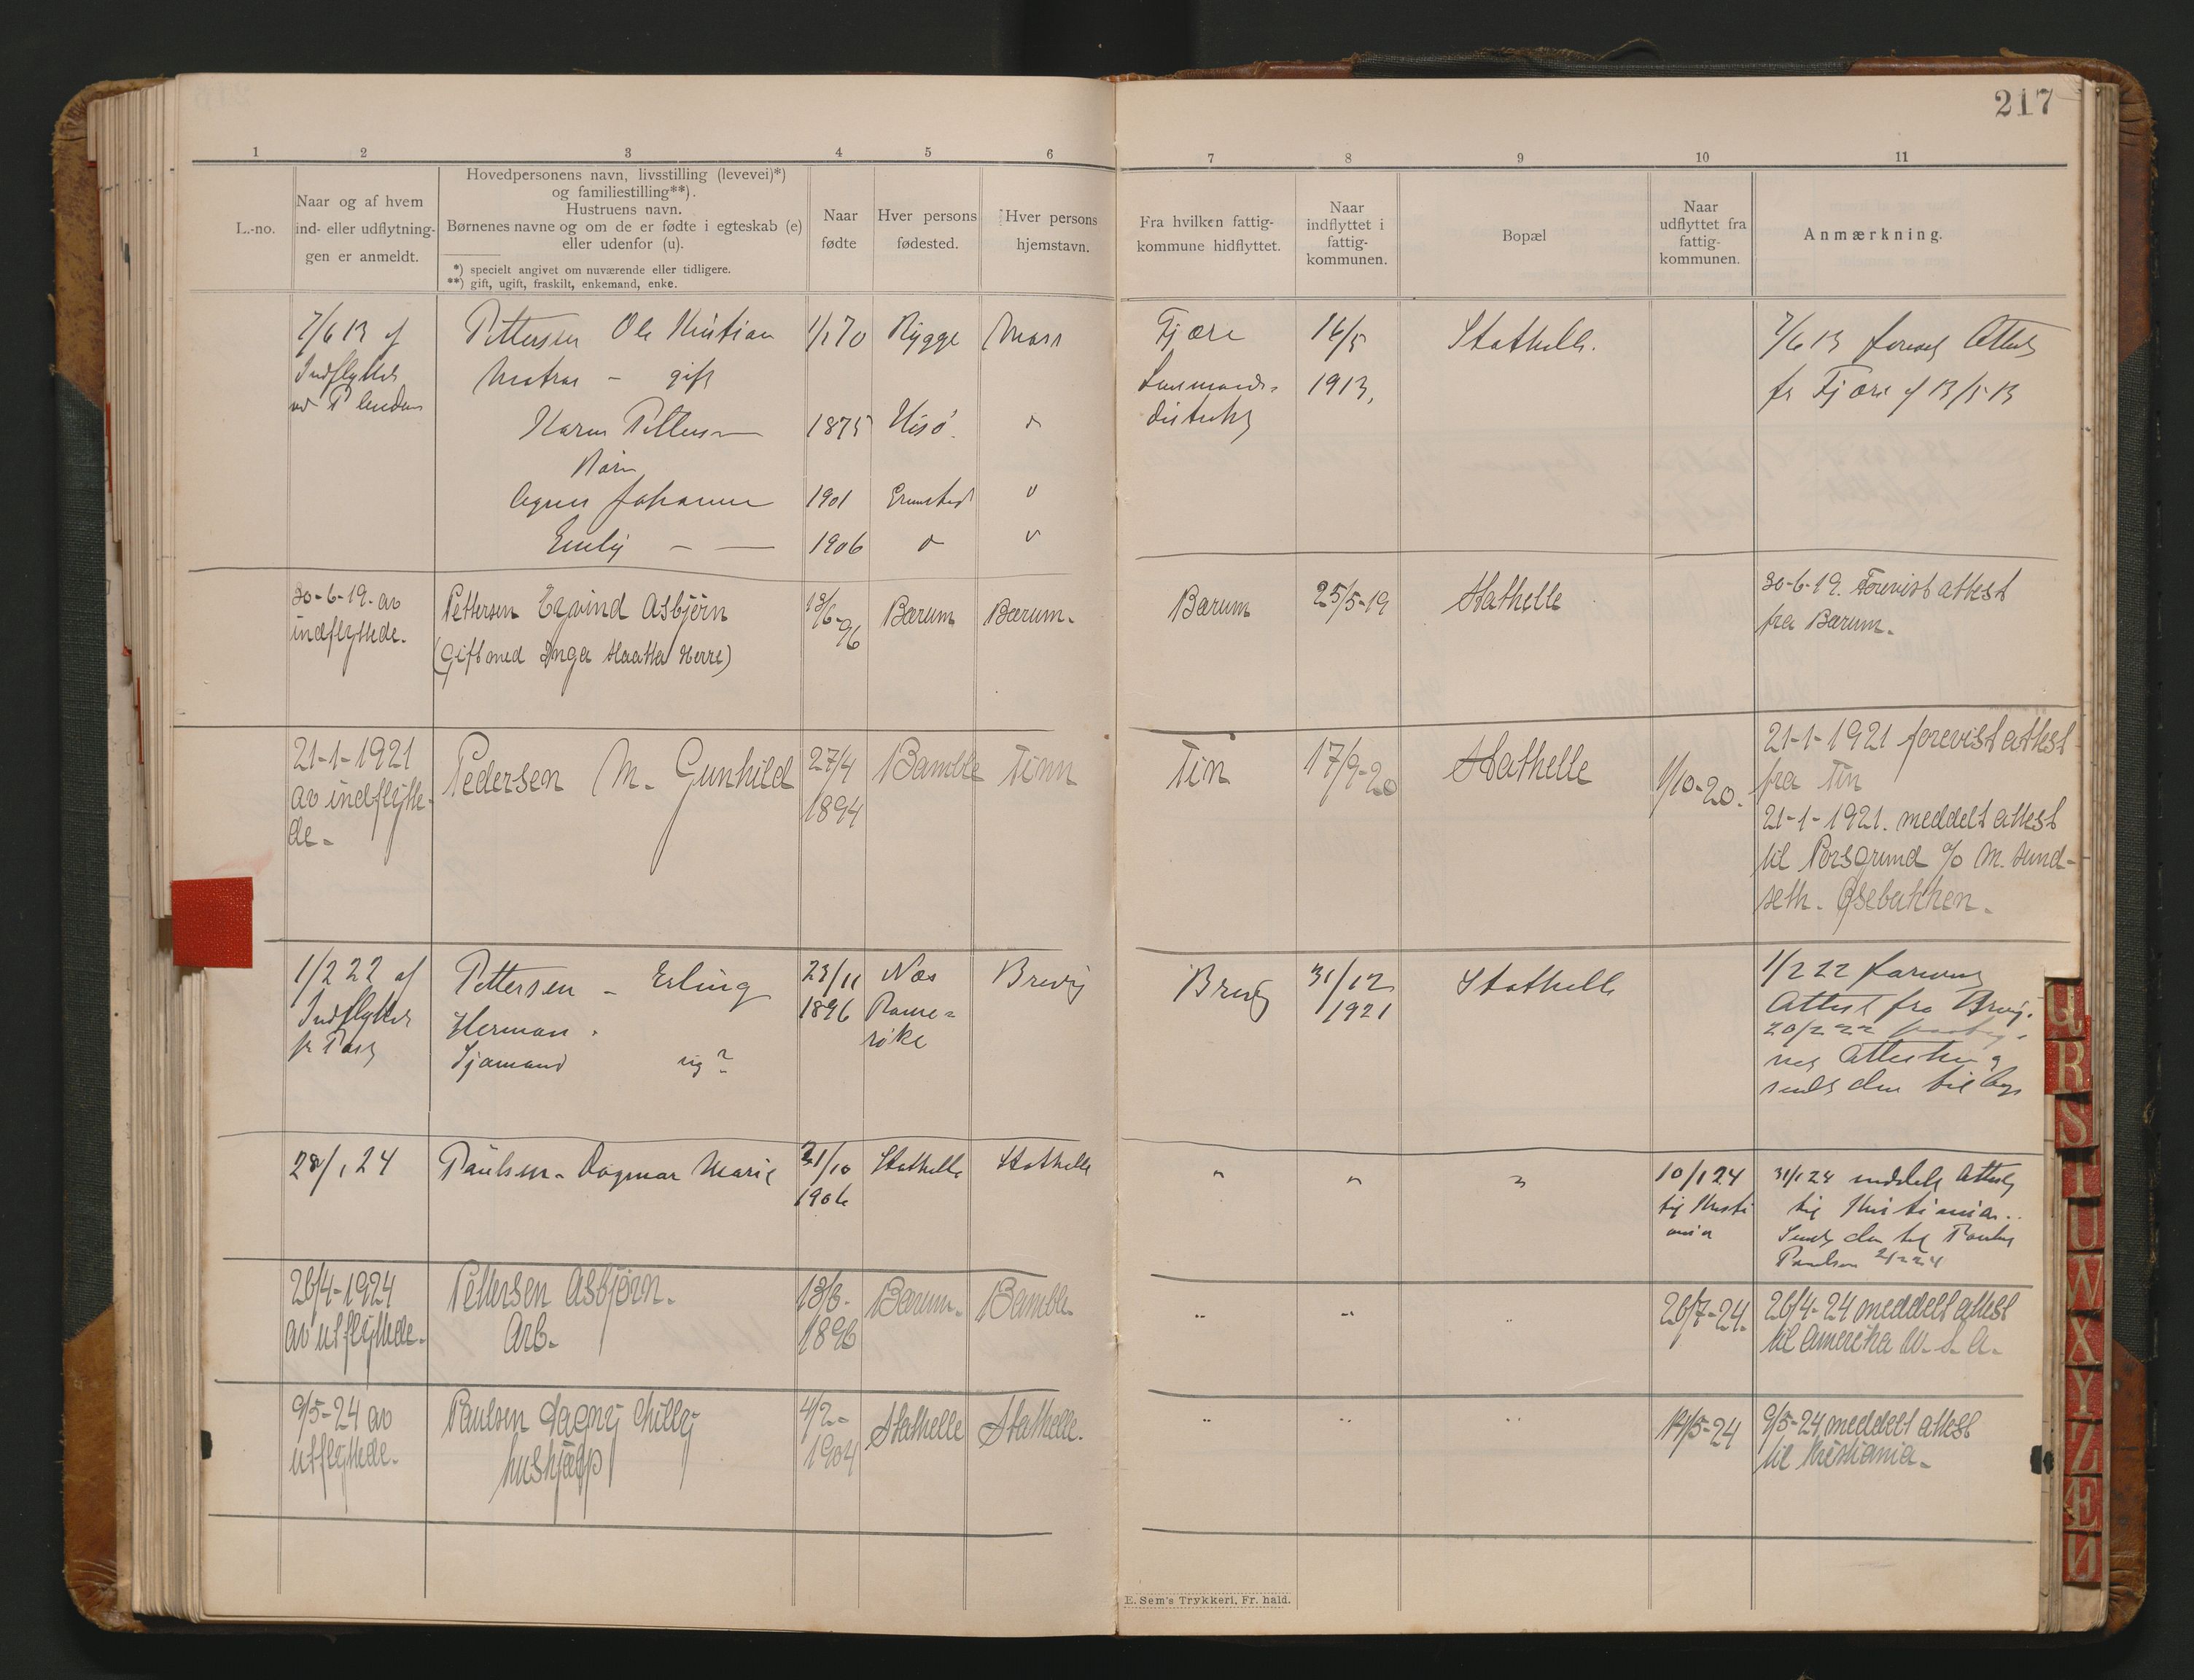 217
1 2 3 4 5 6 7 8 9 10 11
L.-no.
Naar og af hvem
ind- eller udflytning-
gen er anmeldt.
Hovedpersonens navn, livsstilling (levevei)*)
og familiestilling**).
Hustruens navn.
Børnenes navne og om de er fødte i egteskab (e)
eller udenfor (u).
*) specielt angivet om nuværende eller tidligere.
**) gift, ugift, fraskilt, enkemand, enke.
Naar
fødte
Hver persons
fødested.
Hver persons
hjemstavn.
Fra hvilken fattig-
kommune hidflyttet.
Naar
indflyttet i
fattig-
kommunen.
Bopæl
Naar
udflyttet fra
fattig-
kommunen.
Anmærkning.
7/6 13 af
Indflytted
Pettersen Ole Kristian
Matros - gift
1/1 70
Rygge
Moss
Karen Pettersen
1875
Hisö
Børn
Agnes Johanne
1901
Grimstad
Emily
1906
Fjære
Lensmands-
distrikt
14/5
1913,
Stathelle.
7/6 13 forevist Attest
fr Fjære af 13/5 13
30-6-19. av
indflyttede.
Pettersen Eyvind Asbjörn
(Gift med Inga Haatta Herre)
13/6-96
Bærum
Bærum.
Bærum
25/5-19
Stathelle
30-6-19. Forevist attest
fra Bærum.
21-1-1921
av indflytte-
de.
Pedersen M. Gunhild
27/4
1894
Bamble
Tinn
Tin
17/9-20
Stathelle
1/10-20.
21-1-1921 forevist attest
fra Tin
21-1-1921. meddelt attest
til Porsgrund c/o M. Sund-
seth. Osebakken.
1/2 22 af
Indflytted
Pettersen - Erling
Herman.
Sjømand ug?
23/11
1896
Næs
Rome-
rike
Brevig
Brevig
31/12
1921
Stathelle
1/2 22 forevist
Attest fra Brevig.
20/2 22
sendt den til
28/1 24
Paulsen - Dagmar Marie
21/10
1906
Stathelle
Stathelle
" " "
10/1 24
til Kristi
ania
31/1 24 meddelt Attest
til Kristiania.
Sendt den til
Paulsen
26/4-1924
av utflyttede.
Pettersen Asbjørn.
Arb.
13/6-
1896
Bærum.
Bamble.
" " "
26/7-24.
26/4-24 meddelt attest
til Amerika U.S.A.
9/5-24 av
utflyttede.
Paulsen Dagny Milly
hushjælp
4/2-
1904
Stathelle
Stathelle.
" " "
14/5-24
9/5-24 meddelt attest
til Kristiania.
E. Sem's Trykkeri, Fr. hald.
Q
R
S
T
U
W
X
Y
Z
Æ